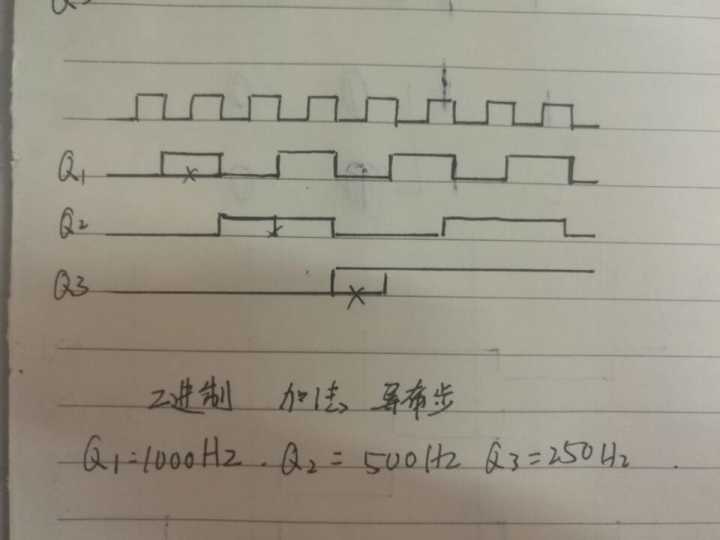 Q₁
Q₂
Q3
2进制 加法 异步
Q₁=1000Hz. Q₂=500Hz Q3=250Hz.